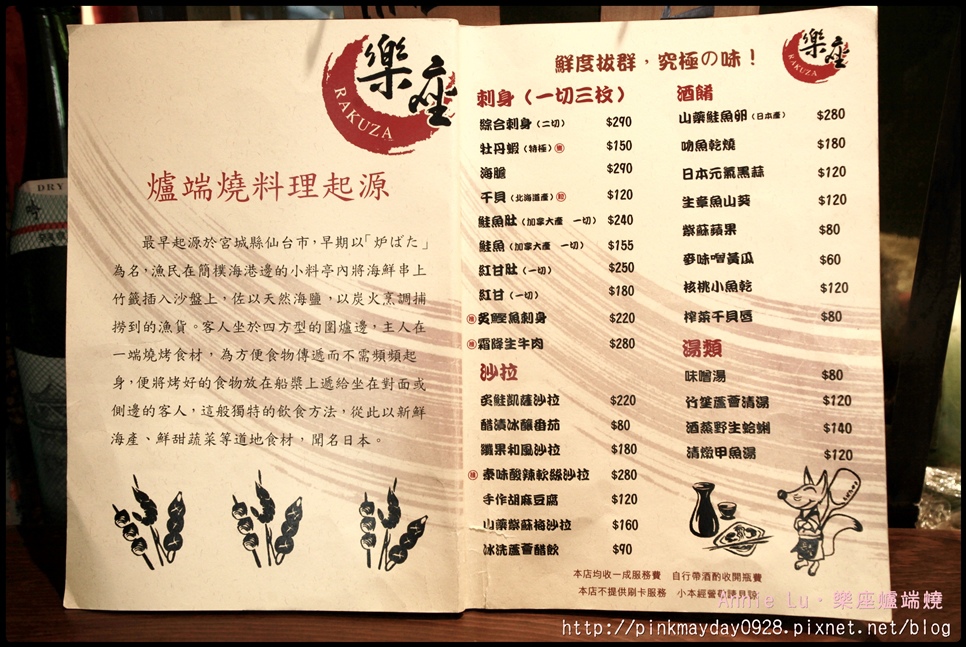 DRY
樂座
RAKUZA
爐端燒料理起源
最早起源於宮城縣仙台市,早期以「炉ばた」
為名,漁民在簡樸海港邊的小料亭內將海鮮串上
竹籤插入沙盤上,佐以天然海鹽,以炭火烹調捕
撈到的漁貨。客人坐於四方型的圍爐邊,主人在
一端燒烤食材,為方便食物傳遞而不需頻頻起
身,便將烤好的食物放在船槳上遞給坐在對面或
側邊的客人,這般獨特的飲食方法,從此以新鮮
海產、鮮甜蔬菜等道地食材,聞名日本。
樂座
RAKUZA
鮮度拔群,究極の味!
刺身(一切三枚)
綜合刺身(二切) $290
牡丹蝦(特極) $150
海膽 $290
干貝(北海道產) $120
鮭魚肚(加拿大產 一切) $240
鮭魚(加拿大產 一切) $155
紅甘肚(一切) $250
紅甘(一切) $180
炙鰹魚刺身 $220
霜降生牛肉 $280
沙拉
炙鮭凱薩沙拉 $220
醋漬冰釀番茄 $80
鑽果和風沙拉 $180
泰味酸辣軟絲沙拉 $280
手作胡麻豆腐 $120
山藥紫蘇梅沙拉 $160
冰洗蘆薈醋飲 $90
酒餚
山藥鮭魚卵(日本產) $280
吻魚乾燒 $180
日本元氣黑蒜 $120
生章魚山葵 $120
紫蘇蘋果 $80
麥味噌黃瓜 $60
核桃小魚乾 $120
榨菜干貝唇 $80
湯類
味噌湯 $80
竹笙蘆薈清湯 $120
酒蒸野生蛤蜊 $140
清燉甲魚湯 $120
本店均收一成服務費 自行帶酒酌收開瓶費
本店不提供刷卡服務 小本經營敬請見諒
Annie Lu·樂座爐端燒
http://pinkmayday0928.pixnet.net/blog